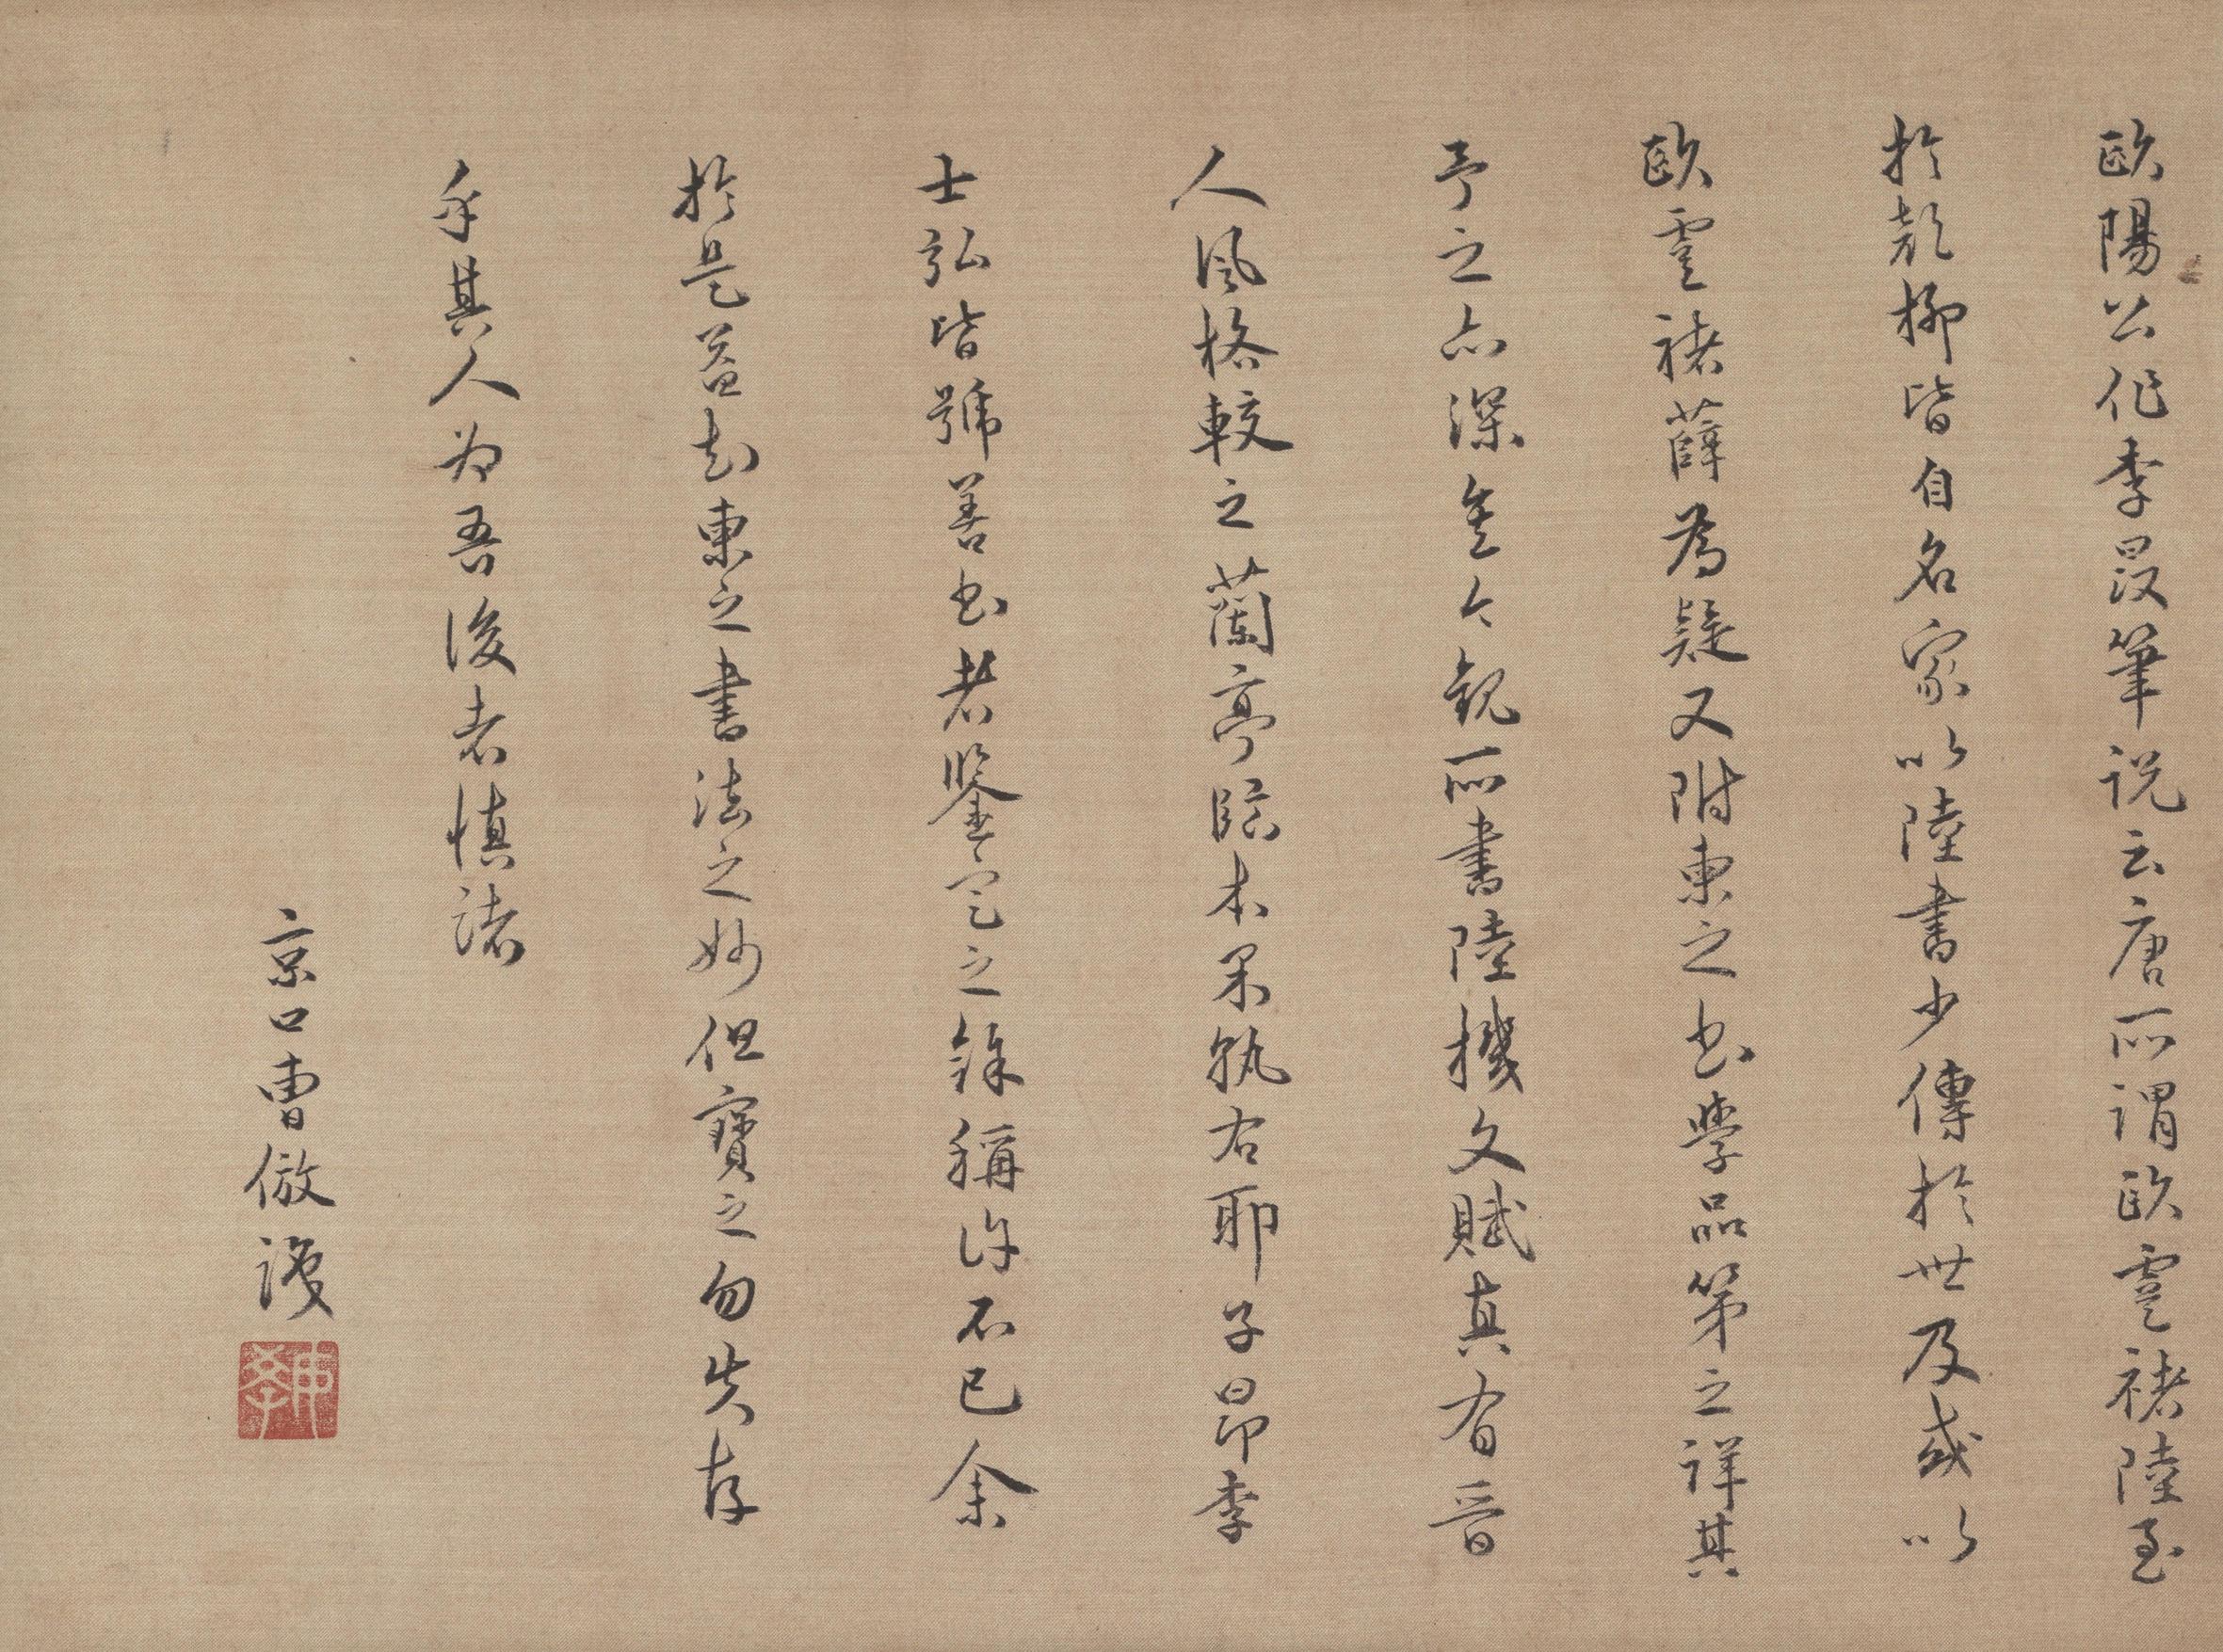 歐陽公作李㫜筆說云唐所謂歐虞褚陸至
於顏柳皆自名家以陸書少傳於世及或以
歐虞褚薛為疑又附柬之書學品第之詳其
予之亦深矣今觀所書陸機文賦真有晉
人風格較之蘭亭臨本果孰右耶子昂李
士弘皆號善書者鑒定之餘稱許不已余
於是益知柬之書法之妙但寶之勿失存
乎其人為吾後者慎諸
京口曹倣識